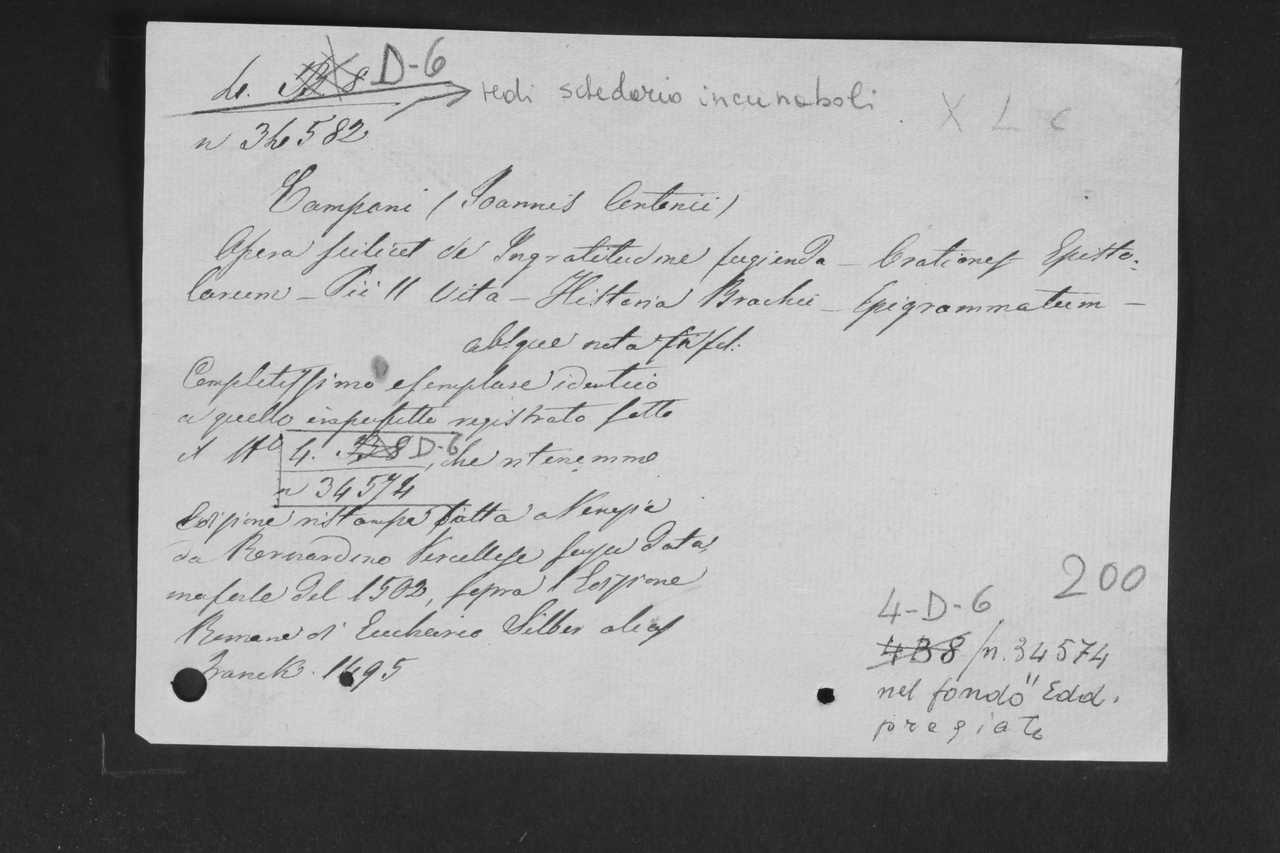 4. B 8 D-6
vedi schedario incunaboli
X L C
n 34582
Campani (Joannis Antonii)
Opera scilicet de Ingratitudine fugienda – Orationes Episto:
larum – Pii II Vita – Historia Brachii – Epigrammatum –
absque nota
Completissimo esemplare identico
a quello imperfetto registrato sotto
il N° 4. B 8 D-6, che ritenemmo
n 34574
Edizione ristampa fatta a Venezia
da Bernardino Vercellese senza data,
ma forse del 1502, sopra l'Edizione
Romana di Euchario Silber alias
Franck. 1495
200
4-D-6
4 B 8 / n. 34574
nel fondo "Edd.
pregiate